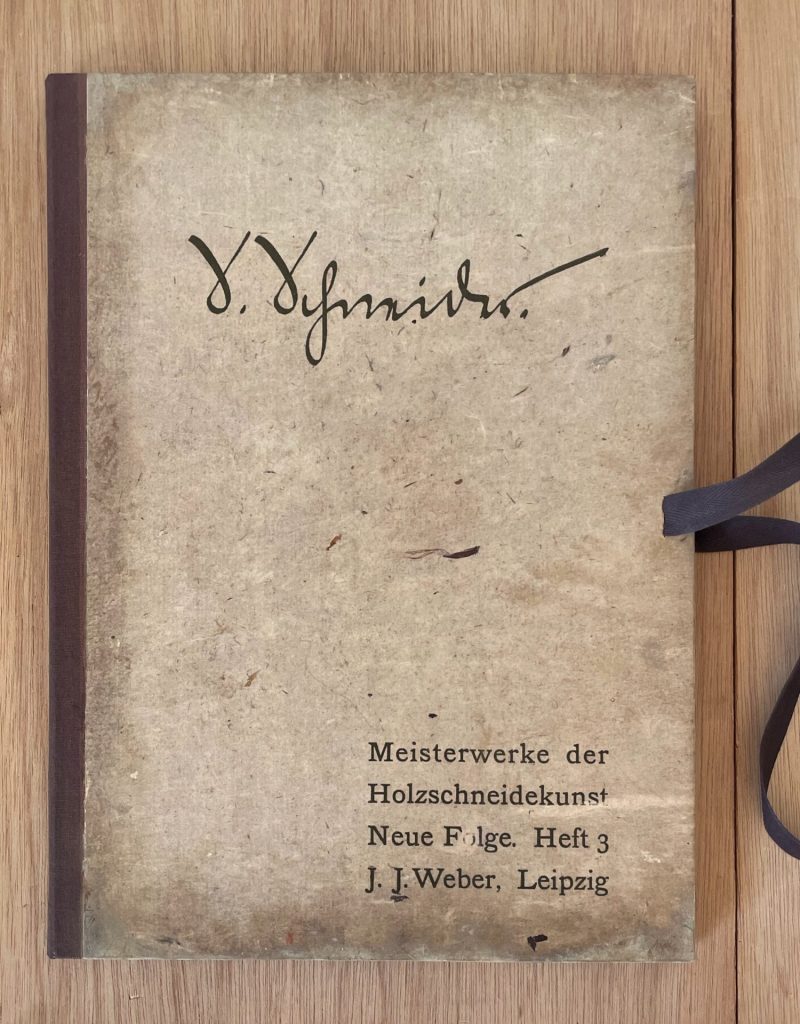 S. Schneider.
Meisterwerke der
Holzschneidekunst
Neue Folge. Heft 3
J. J. Weber, Leipzig